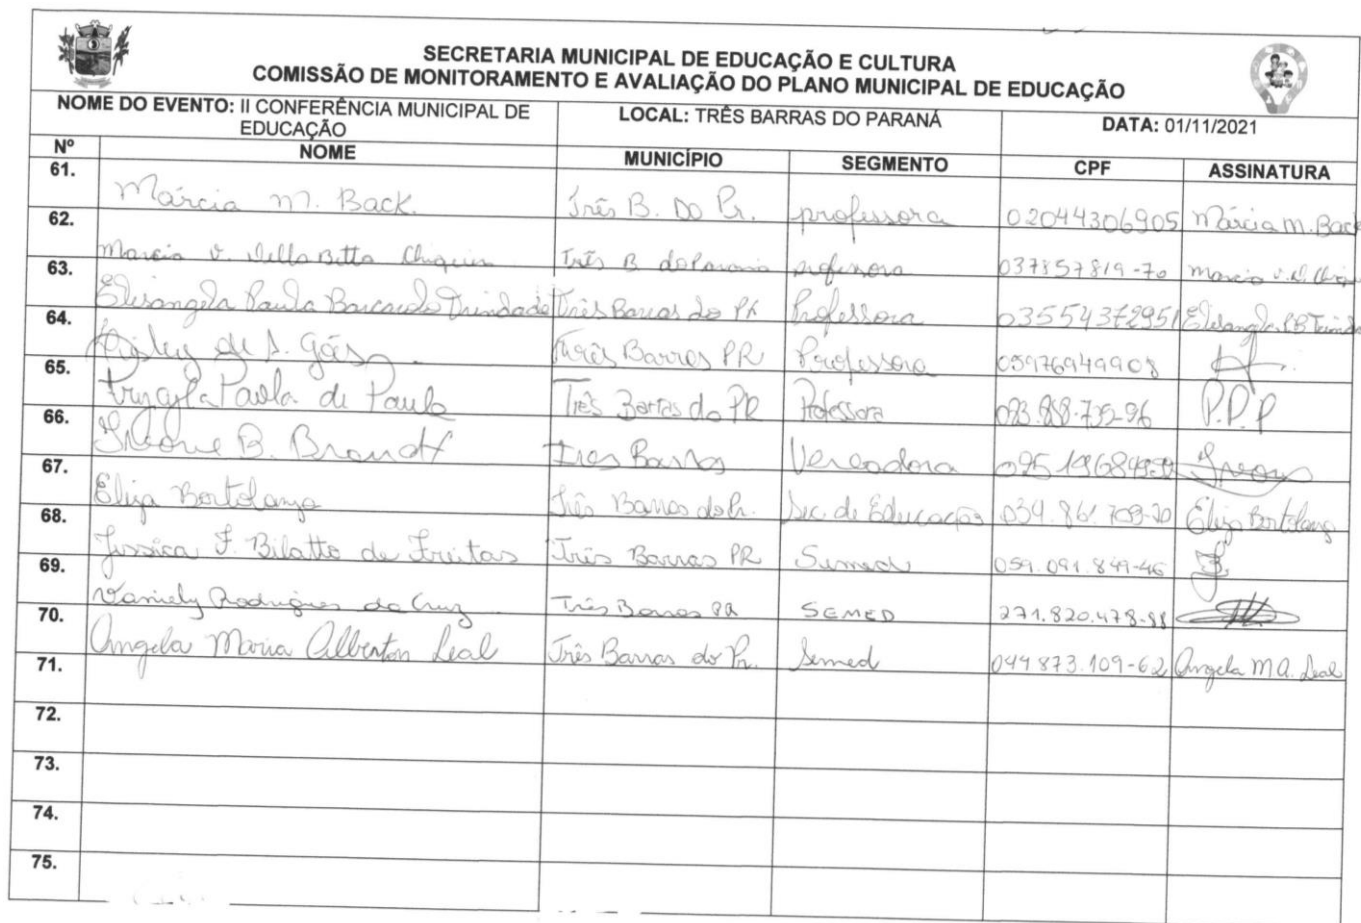 SECRETARIA MUNICIPAL DE EDUCAÇÃO E CULTURA
COMISSÃO DE MONITORAMENTO E AVALIAÇÃO DO PLANO MUNICIPAL DE EDUCAÇÃO
NOME DO EVENTO: II CONFERÊNCIA MUNICIPAL DE EDUCAÇÃO LOCAL: TRÊS BARRAS DO PARANÁ DATA: 01/11/2021
Nº NOME MUNICÍPIO SEGMENTO CPF ASSINATURA
61. Márcia M. Back. Três B. DO Pr. professora 02044306905 Márcia M. Back
62. Marcia V. Della Betta Três B. do Parana professora 037857819-70 Marcia V. D.
63. Elisangela Paula Trindade Três Barras do PR Professora 03554372951 Elisangela PB
64. de S. Góes Três Barras PR Professora 05976949908
65. Paola de Paula Três Barras do PR Professora P.D.P
66. B. Brandt Tres Barras Vereadora
67. Eliza Bortolanza Três Barras do Pr. Sec. de Educação 034.861.709-20 Eliza Bortolanza
68. Jessica F. Bilatto de Freitas Três Barras PR Semed 059.091.849-46
69. Vaniely Rodrigues da Cruz Três Barras PR SEMED 271.820.478-88
70. Angela Maria Alberton Leal Três Barras do Pr. Semed 044873.109-62 Angela M A. Leal
71.
72.
73.
74.
75.